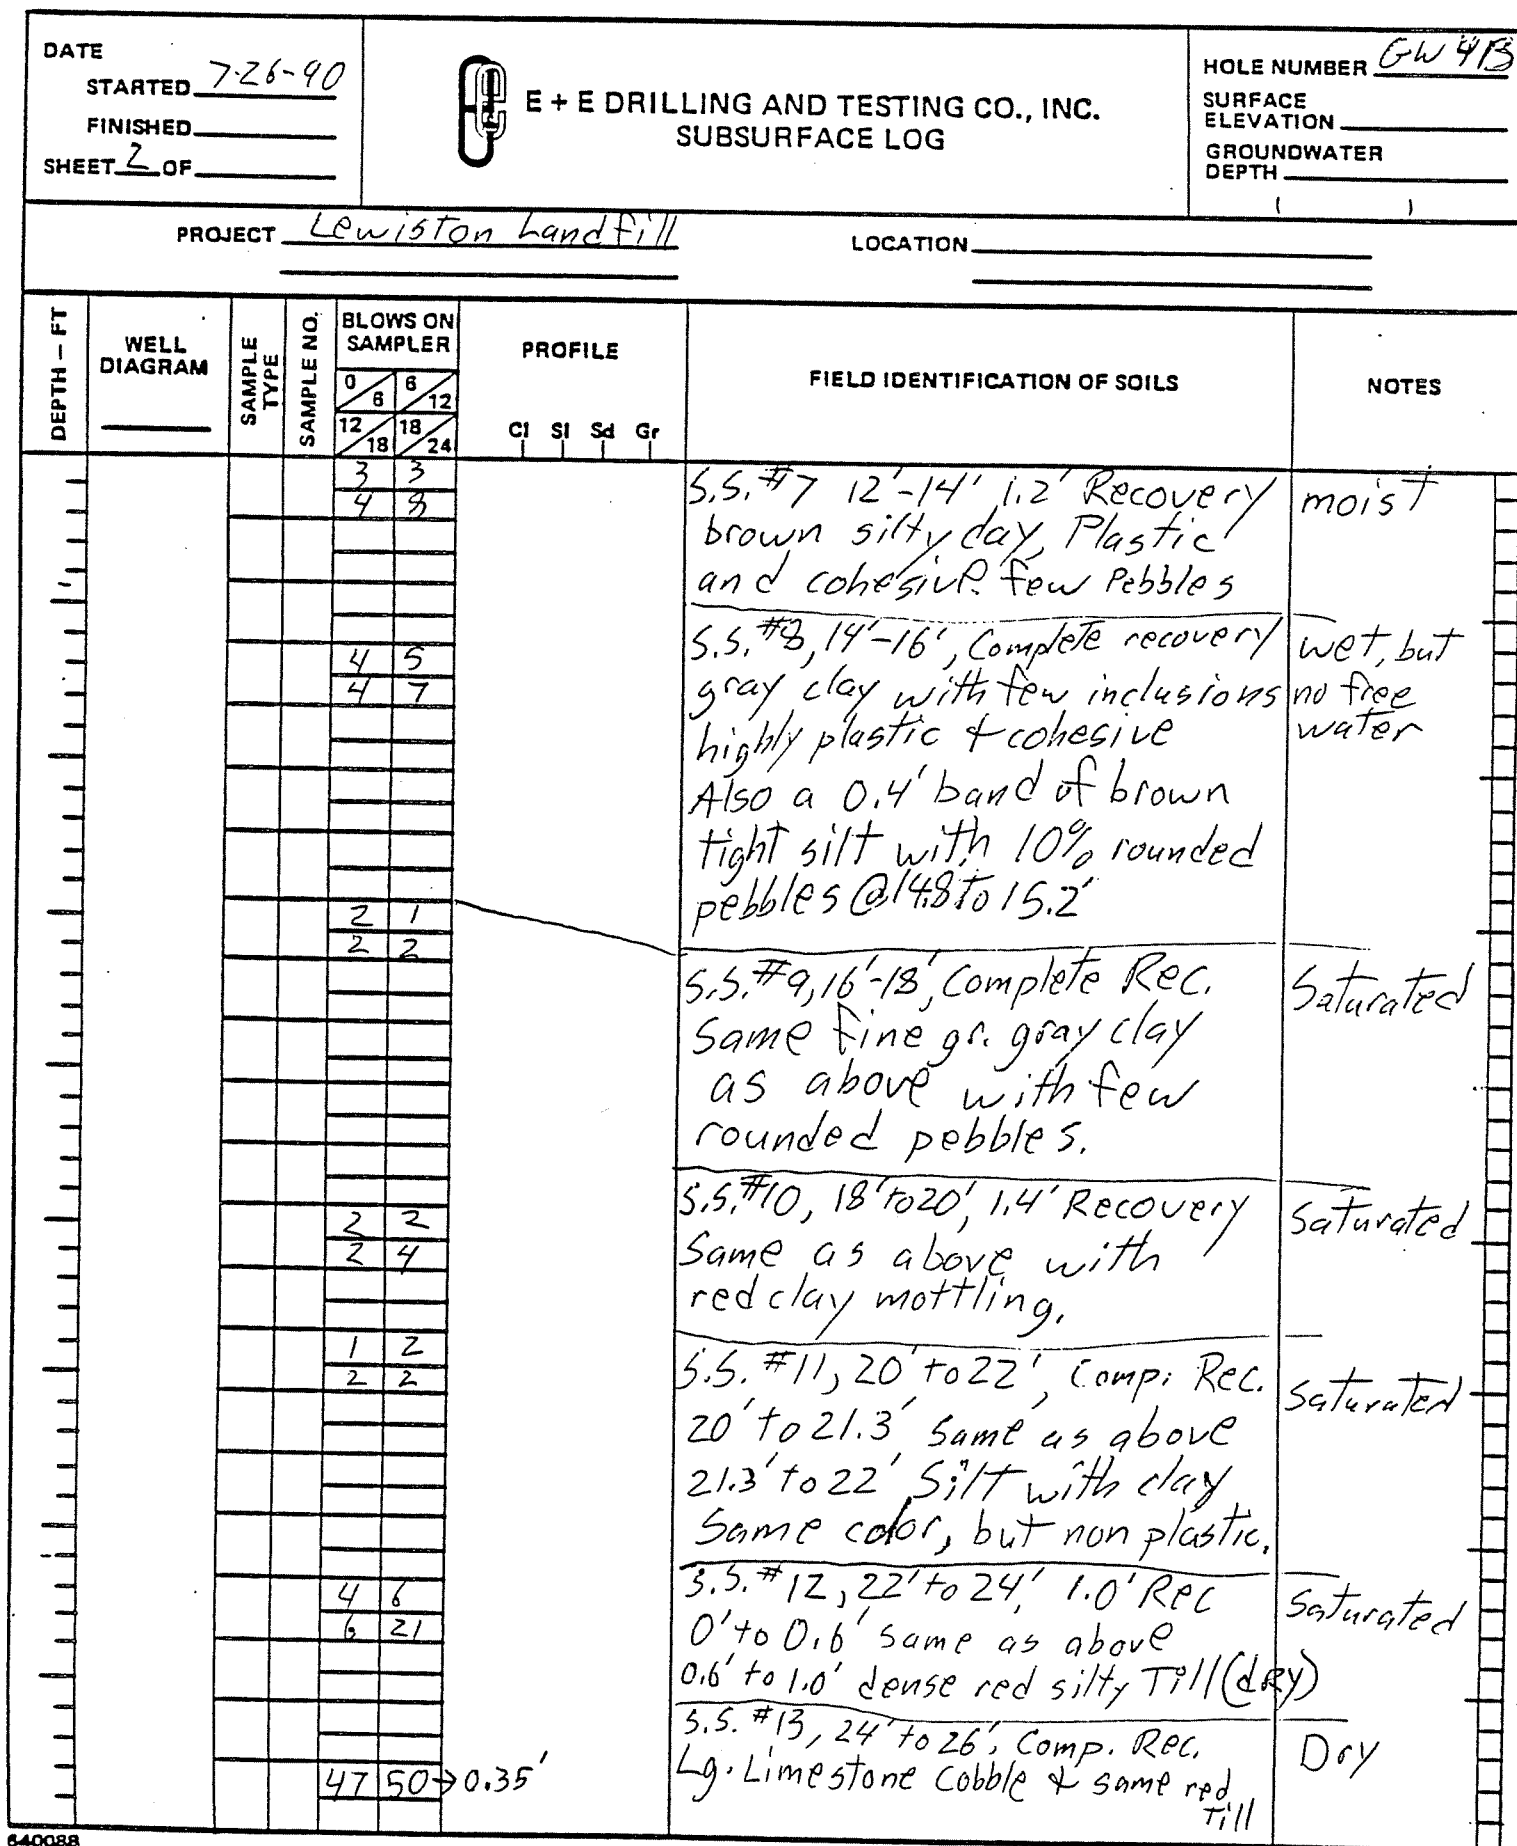 DATE
STARTED 7-26-90
FINISHED
SHEET 2 OF
E + E DRILLING AND TESTING CO., INC.
SUBSURFACE LOG
HOLE NUMBER GW 4B
SURFACE
ELEVATION
GROUNDWATER
DEPTH
( )
PROJECT Lewiston Landfill
LOCATION
DEPTH – FT
WELL
DIAGRAM
SAMPLE
TYPE
SAMPLE NO.
BLOWS ON
SAMPLER
0/6 6/12
12/18 18/24
PROFILE
Cl Sl Sd Gr
FIELD IDENTIFICATION OF SOILS
NOTES
3 3
4 8
S.S. #7 12'-14' 1.2' Recovery
brown silty clay, Plastic
and cohesive. few Pebbles
moist
4 5
4 7
S.S. #8, 14'-16', Complete recovery
gray clay with few inclusions
highly plastic & cohesive
Also a 0.4' band of brown
tight silt with 10% rounded
pebbles @ 14.8 to 15.2'
wet, but
no free
water
2 1
2 2
S.S. #9, 16'-18', Complete Rec.
Same fine gr. gray clay
as above with few
rounded pebbles.
Saturated
2 2
2 4
S.S. #10, 18' to 20', 1.4' Recovery
Same as above with
red clay mottling.
Saturated
1 2
2 2
S.S. #11, 20' to 22', Comp. Rec.
20' to 21.3' Same as above
21.3' to 22' Silt with clay
Same color, but non plastic.
Saturated
4 6
6 21
S.S. #12, 22' to 24', 1.0' Rec
0' to 0.6' same as above
0.6' to 1.0' dense red silty Till (dRy)
Saturated
47 50→0.35'
S.S. #13, 24' to 26', Comp. Rec.
Lg. Limestone Cobble & same red
Till
Dry
640088